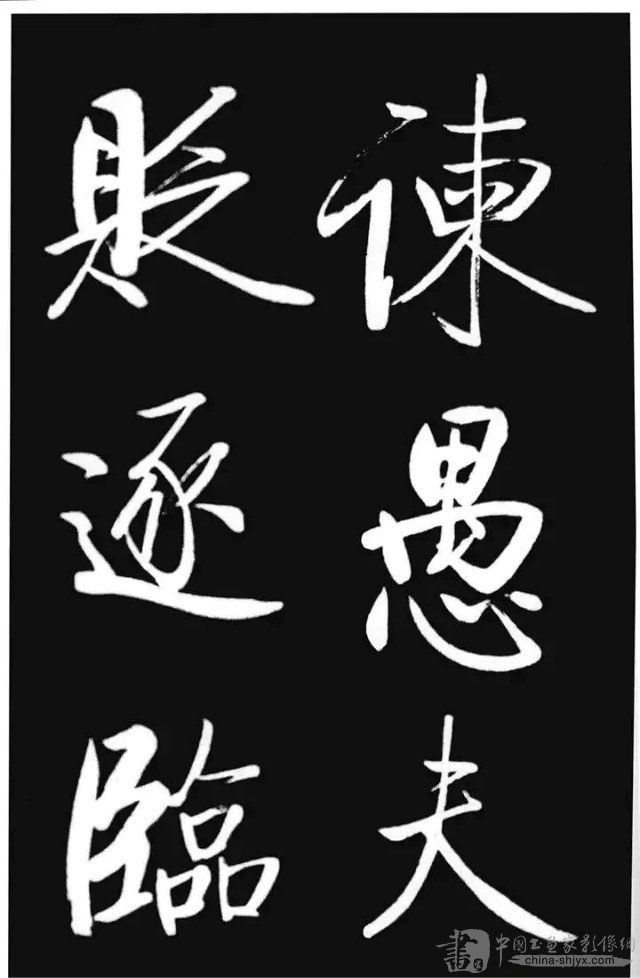 諫愚夫
貶逐臨
中國书画家影像網
china-shjyx.com